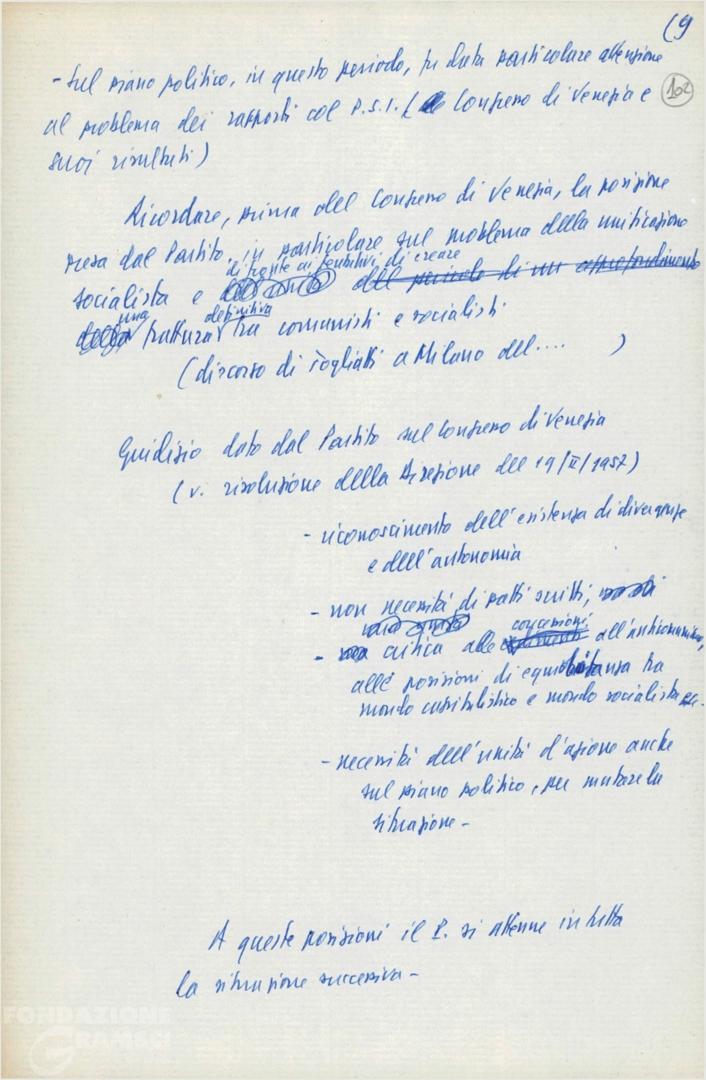 (9
- Sul piano politico, in questo periodo, fu data particolare attenzione
102
al problema dei rapporti col P.S.I. ( Congresso di Venezia e
suoi risultati)
Ricordare, prima del Congresso di Venezia, la posizione
presa dal Partito, in particolare sul problema della unificazione
di fronte ai tentativi di creare
socialista e del pericolo di un approfondimento
una definitiva
della frattura tra comunisti e socialisti
(discorso di Togliatti a Milano del.... )
Giudizio dato dal Partito sul Congresso di Venezia
(v. risoluzione della Direzione del 19/II/1957)
- riconoscimento dell'esistenza di divergenze
e dell'autonomia
- non necessità di patti scritti,
concessioni
- critica alle all'anticomunismo,
alle posizioni di equidistanza tra
mondo capitalistico e mondo socialista ecc.
- necessità dell'unità d'azione anche
sul piano politico, per mutare la
situazione -
A queste posizioni il P. si attenne in tutta
la situazione successiva -
FONDAZIONE
GRAMSCI